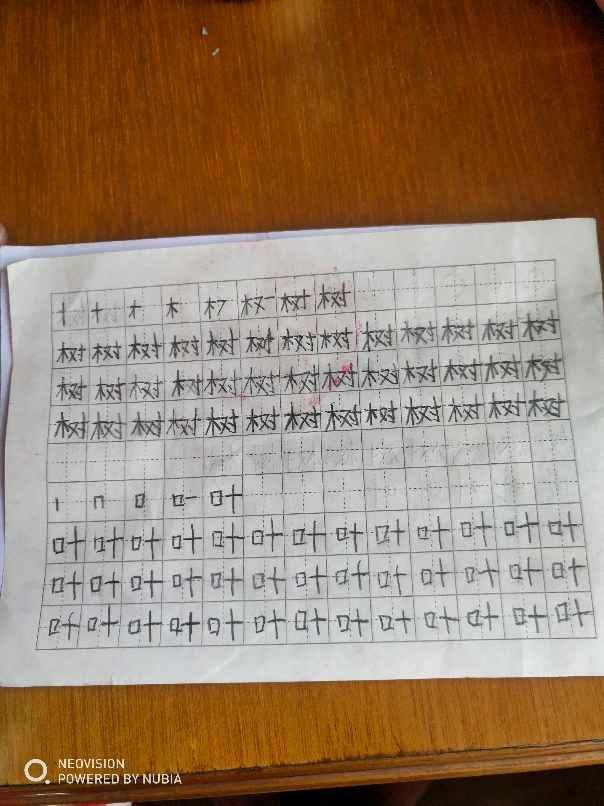 十 十 才 木 木フ 权一 权十 树
树 树 树 树 树 树 树 树 树 树 树 树 树
树 树 树 树 树 树 树 树 树 树 树 树 树
树 树 树 树 树 树 树 树 树 树 树 树 树
丨 冂 口 口一 叶
叶 叶 叶 叶 叶 叶 叶 叶 叶 叶 叶 叶 叶
叶 叶 叶 叶 叶 叶 叶 叶 叶 叶 叶 叶 叶
叶 叶 叶 叶 叶 叶 叶 叶 叶 叶 叶 叶 叶
NEOVISION
POWERED BY NUBIA